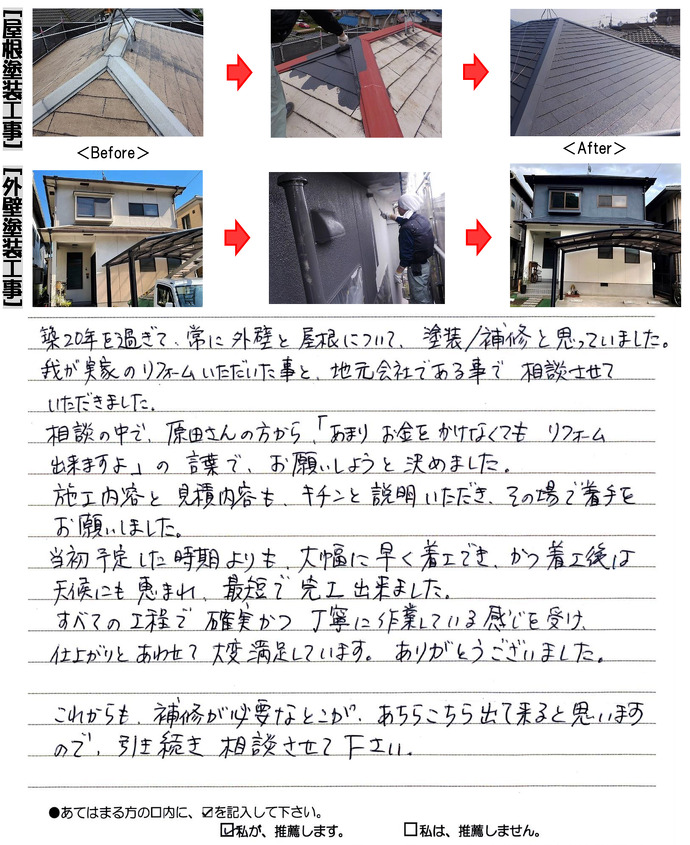 【屋根塗装工事】
<Before>
<After>
【外壁塗装工事】
築20年を過ぎて、常に外壁と屋根について、塗装/補修と思っていました。
我が実家のリフォームいただいた事と、地元会社である事で相談させて
いただきました。
相談の中で、原田さんの方から、「あまりお金をかけなくてもリフォーム
出来ますよ」の言葉で、お願いしようと決めました。
施工内容と見積内容も、キチンと説明いただき、その場で着手を
お願いしました。
当初予定した時期よりも、大幅に早く着工でき、かつ着工後は
天候にも恵まれ、最短で完工出来ました。
すべての工程で確実かつ丁寧に作業している感じを受け、
仕上がりとあわせて大変満足しています。ありがとうございました。
これからも、補修が必要なとこが、あちらこちら出て来ると思います
ので、引き続き相談させて下さい。
●あてはまる方の口内に、☑を記入して下さい。
☑私が、推薦します。 □私は、推薦しません。